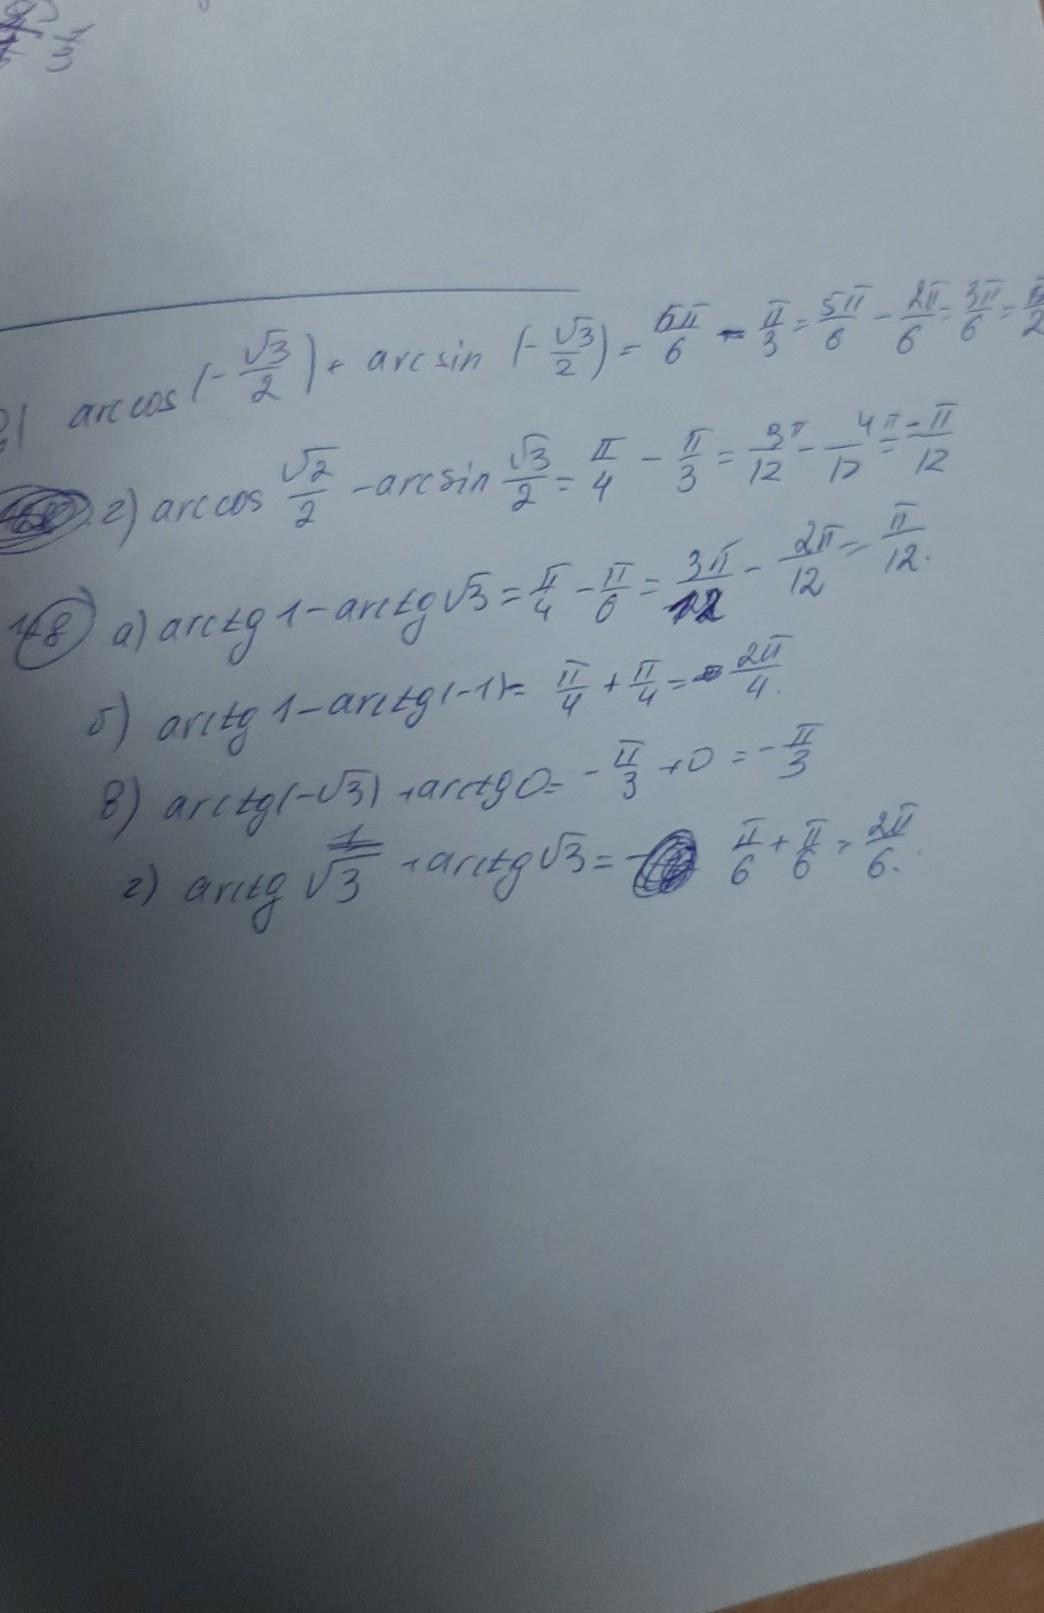 1/3
в) arccos (-√3/2) + arcsin (-√3/2) = 5π/6 - π/3 = 5π/6 - 2π/6 = 3π/6 = π/2
г) arccos √2/2 - arcsin √3/2 = π/4 - π/3 = 3π/12 - 4π/12 = -π/12
а) arctg 1 - arctg √3 = π/4 - π/6 = 3π/12 - 2π/12 = π/12.
б) arctg 1 - arctg(-1) = π/4 + π/4 = 2π/4.
в) arctg(-√3) + arctg 0 = -π/3 + 0 = -π/3
г) arctg 1/√3 + arctg √3 = π/6 + π/6 = 2π/6.